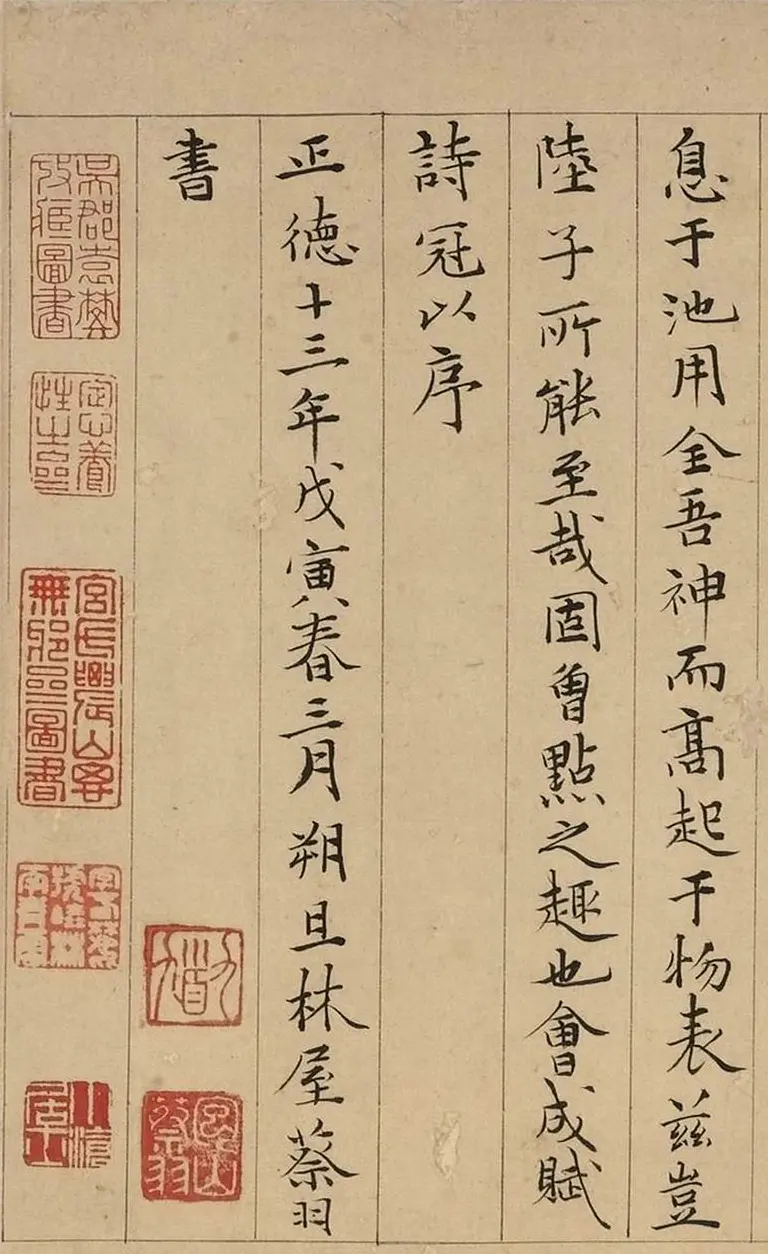 息于池用全吾神而髙起于物表茲豈
陸子所能至哉固曾點之趣也會成賦
詩冠以序
正德十三年戊寅春三月朔旦林屋蔡羽
書